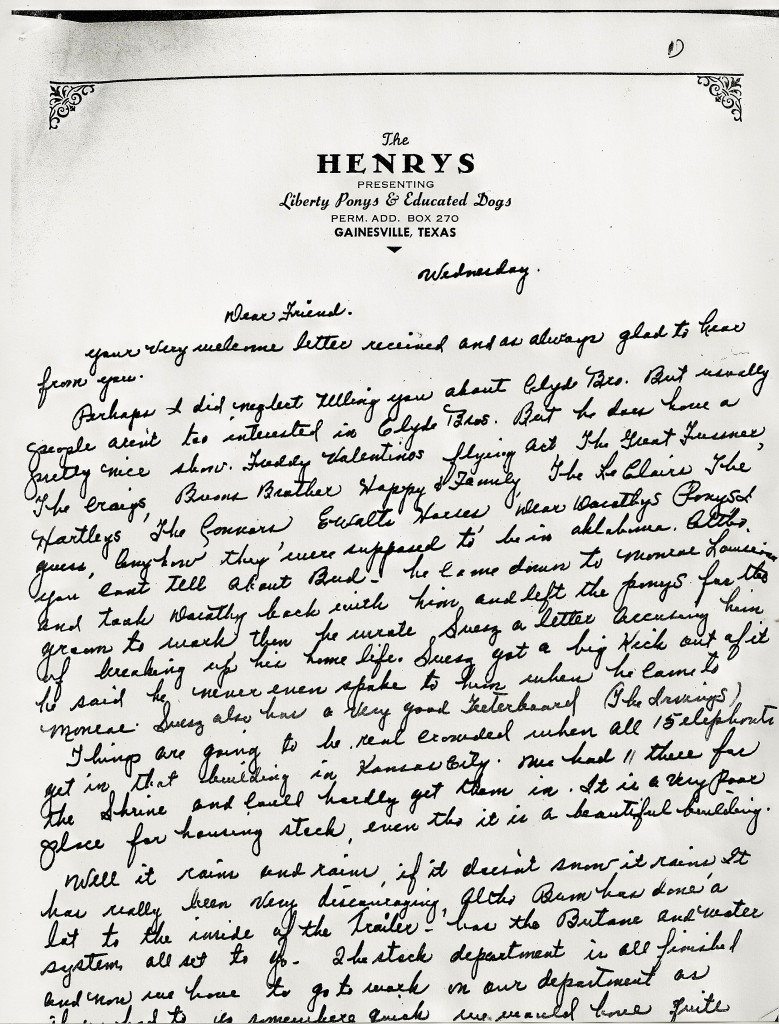 1)
The
HENRYS
PRESENTING
Liberty Ponys & Educated Dogs
PERM. ADD. BOX 270
GAINESVILLE, TEXAS
Wednesday.
Dear Friend.
your very welcome letter received and as always glad to hear
from you.
Perhaps I did neglect telling you about Clyde Bro. But usually
people aren't too interested in Clyde Bros. But he does have a
pretty nice show. Freddy Valentinos flying act, The Great Fussner,
The Craigs, Brother Happy & Family The Le Clairs The
Hartleys, The Connors Ewalts Horses Dorothys Ponys I
guess, anyhow they were supposed to be in oklahoma. altho.
you cant tell about Bud - he came down to Monroe Louisiana
and took Dorothy back with him, and left the ponys for the
groom to work then he wrote Suesz a letter accusing him
of breaking up his home life. Suesz got a big kick out of it
he said he never even spoke to him when he came to
Monroe. Suesz also has a very good Teeterboard (The Irvings)
Things are going to be real crowded when all 15 elephants
get in that building in Kansas City. we had 11 there for
the Shrine and could hardly get them in. It is a very Poor
place for housing stock, even tho it is a beautiful building.
Well it rains and rains, if it doesn't snow it rains. It
has really been very discouraging, altho Bum has done a
lot to the inside of the Trailer - has the Butane and water
system, all set to go. The stock department is all finished
and now we have to go to work on our department as
had to go somewhere quick we would have quite